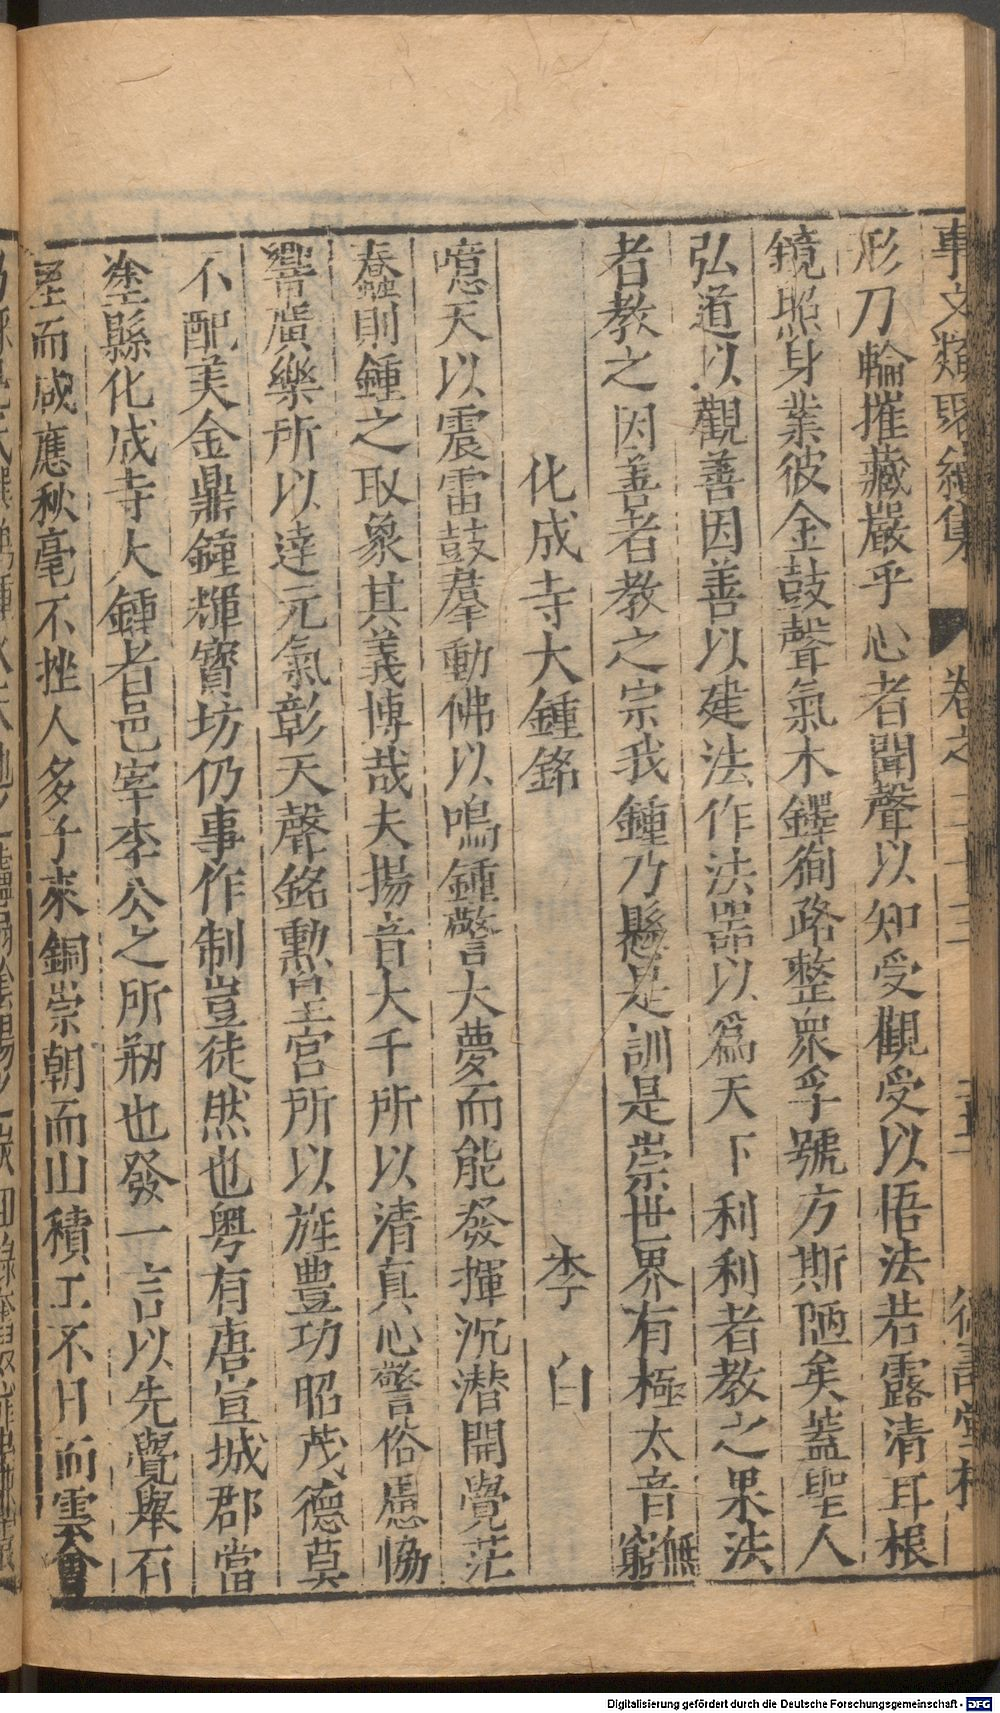 事文類聚續集 卷之二十三
形刀輪摧藏嚴乎心者聞聲以知受觀受以悟法若露清耳根
鏡照身業彼金鼓聲氣木鐸徇路整衆孚號方斯陋矣蓋聖人
弘道以觀善因善以建法作法噐以爲天下利利者教之果法
者教之因善者教之宗我鍾乃懸是訓是崇世界有極太音無窮
化成寺大鍾銘 李白
噫天以震雷鼓羣動佛以鳴鍾警大夢而能發揮沉潛開覺茫
蠢則鍾之取象其義博哉夫揚音大千所以清真心警俗慮協
響廣樂所以達元氣彰天聲銘勲皇宫所以旌豊功昭茂德莫
不配美金鼎鍾輝寳坊仍事作制豈徒然也粤有唐宣城郡當
塗縣化成寺大鍾者邑宰李公之所剏也發一言以先覺舉石
里而咸應秋毫不挫人多子來銅崇朝而山積工不日而雲會
Digitalisierung gefördert durch die Deutsche Forschungsgemeinschaft - DFG